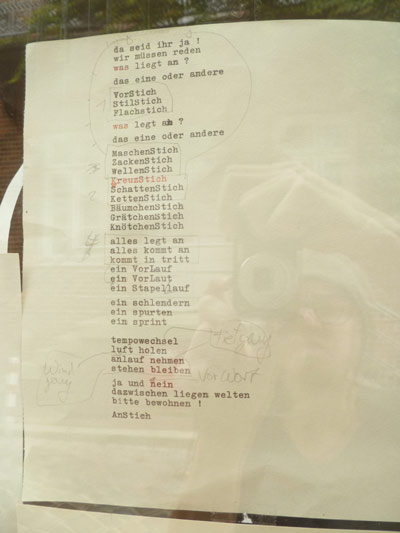 da seid ihr ja !
wir müssen reden
was liegt an ?
das eine oder andere
VorStich
StilStich
Flachstich
was legt an ?
das eine oder andere
MaschenStich
ZackenStich
WellenStich
KreuzStich
SchattenStich
KettenStich
BäumchenStich
GrätchenStich
KnötchenStich
alles legt an
alles kommt an
kommt in tritt
ein VorLauf
ein VorLaut
ein Stapellauf
ein schlendern
ein spurten
ein sprint
tempowechsel
luft holen
anlauf nehmen
stehen bleiben
VorWort
ja und nein
dazwischen liegen welten
bitte bewohnen !
AnStich